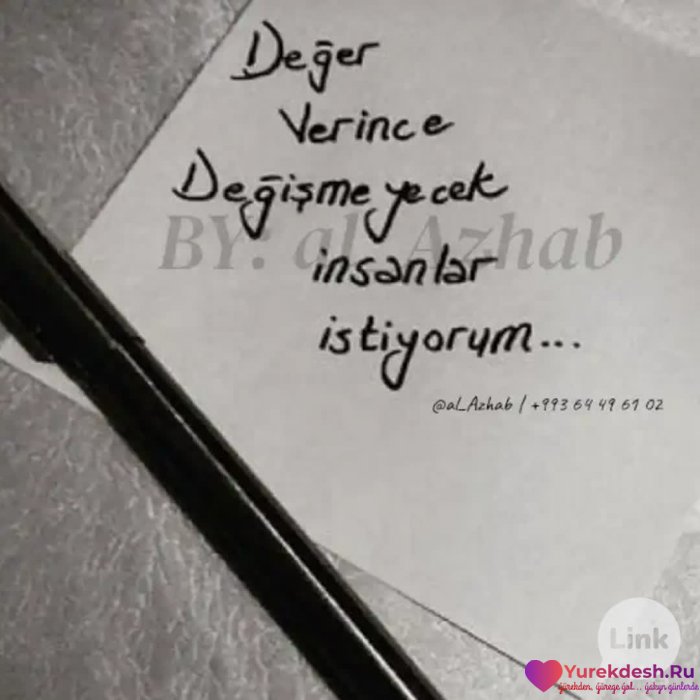 Değer
Verince
Değişmeyecek
BY: al_Azhab
insanlar
istiyorum...
@al_Azhab / +993 64 49 61 02
Link
Yurekdesh.Ru
ýürekden, ýürege ýol... ýakyn günlerde